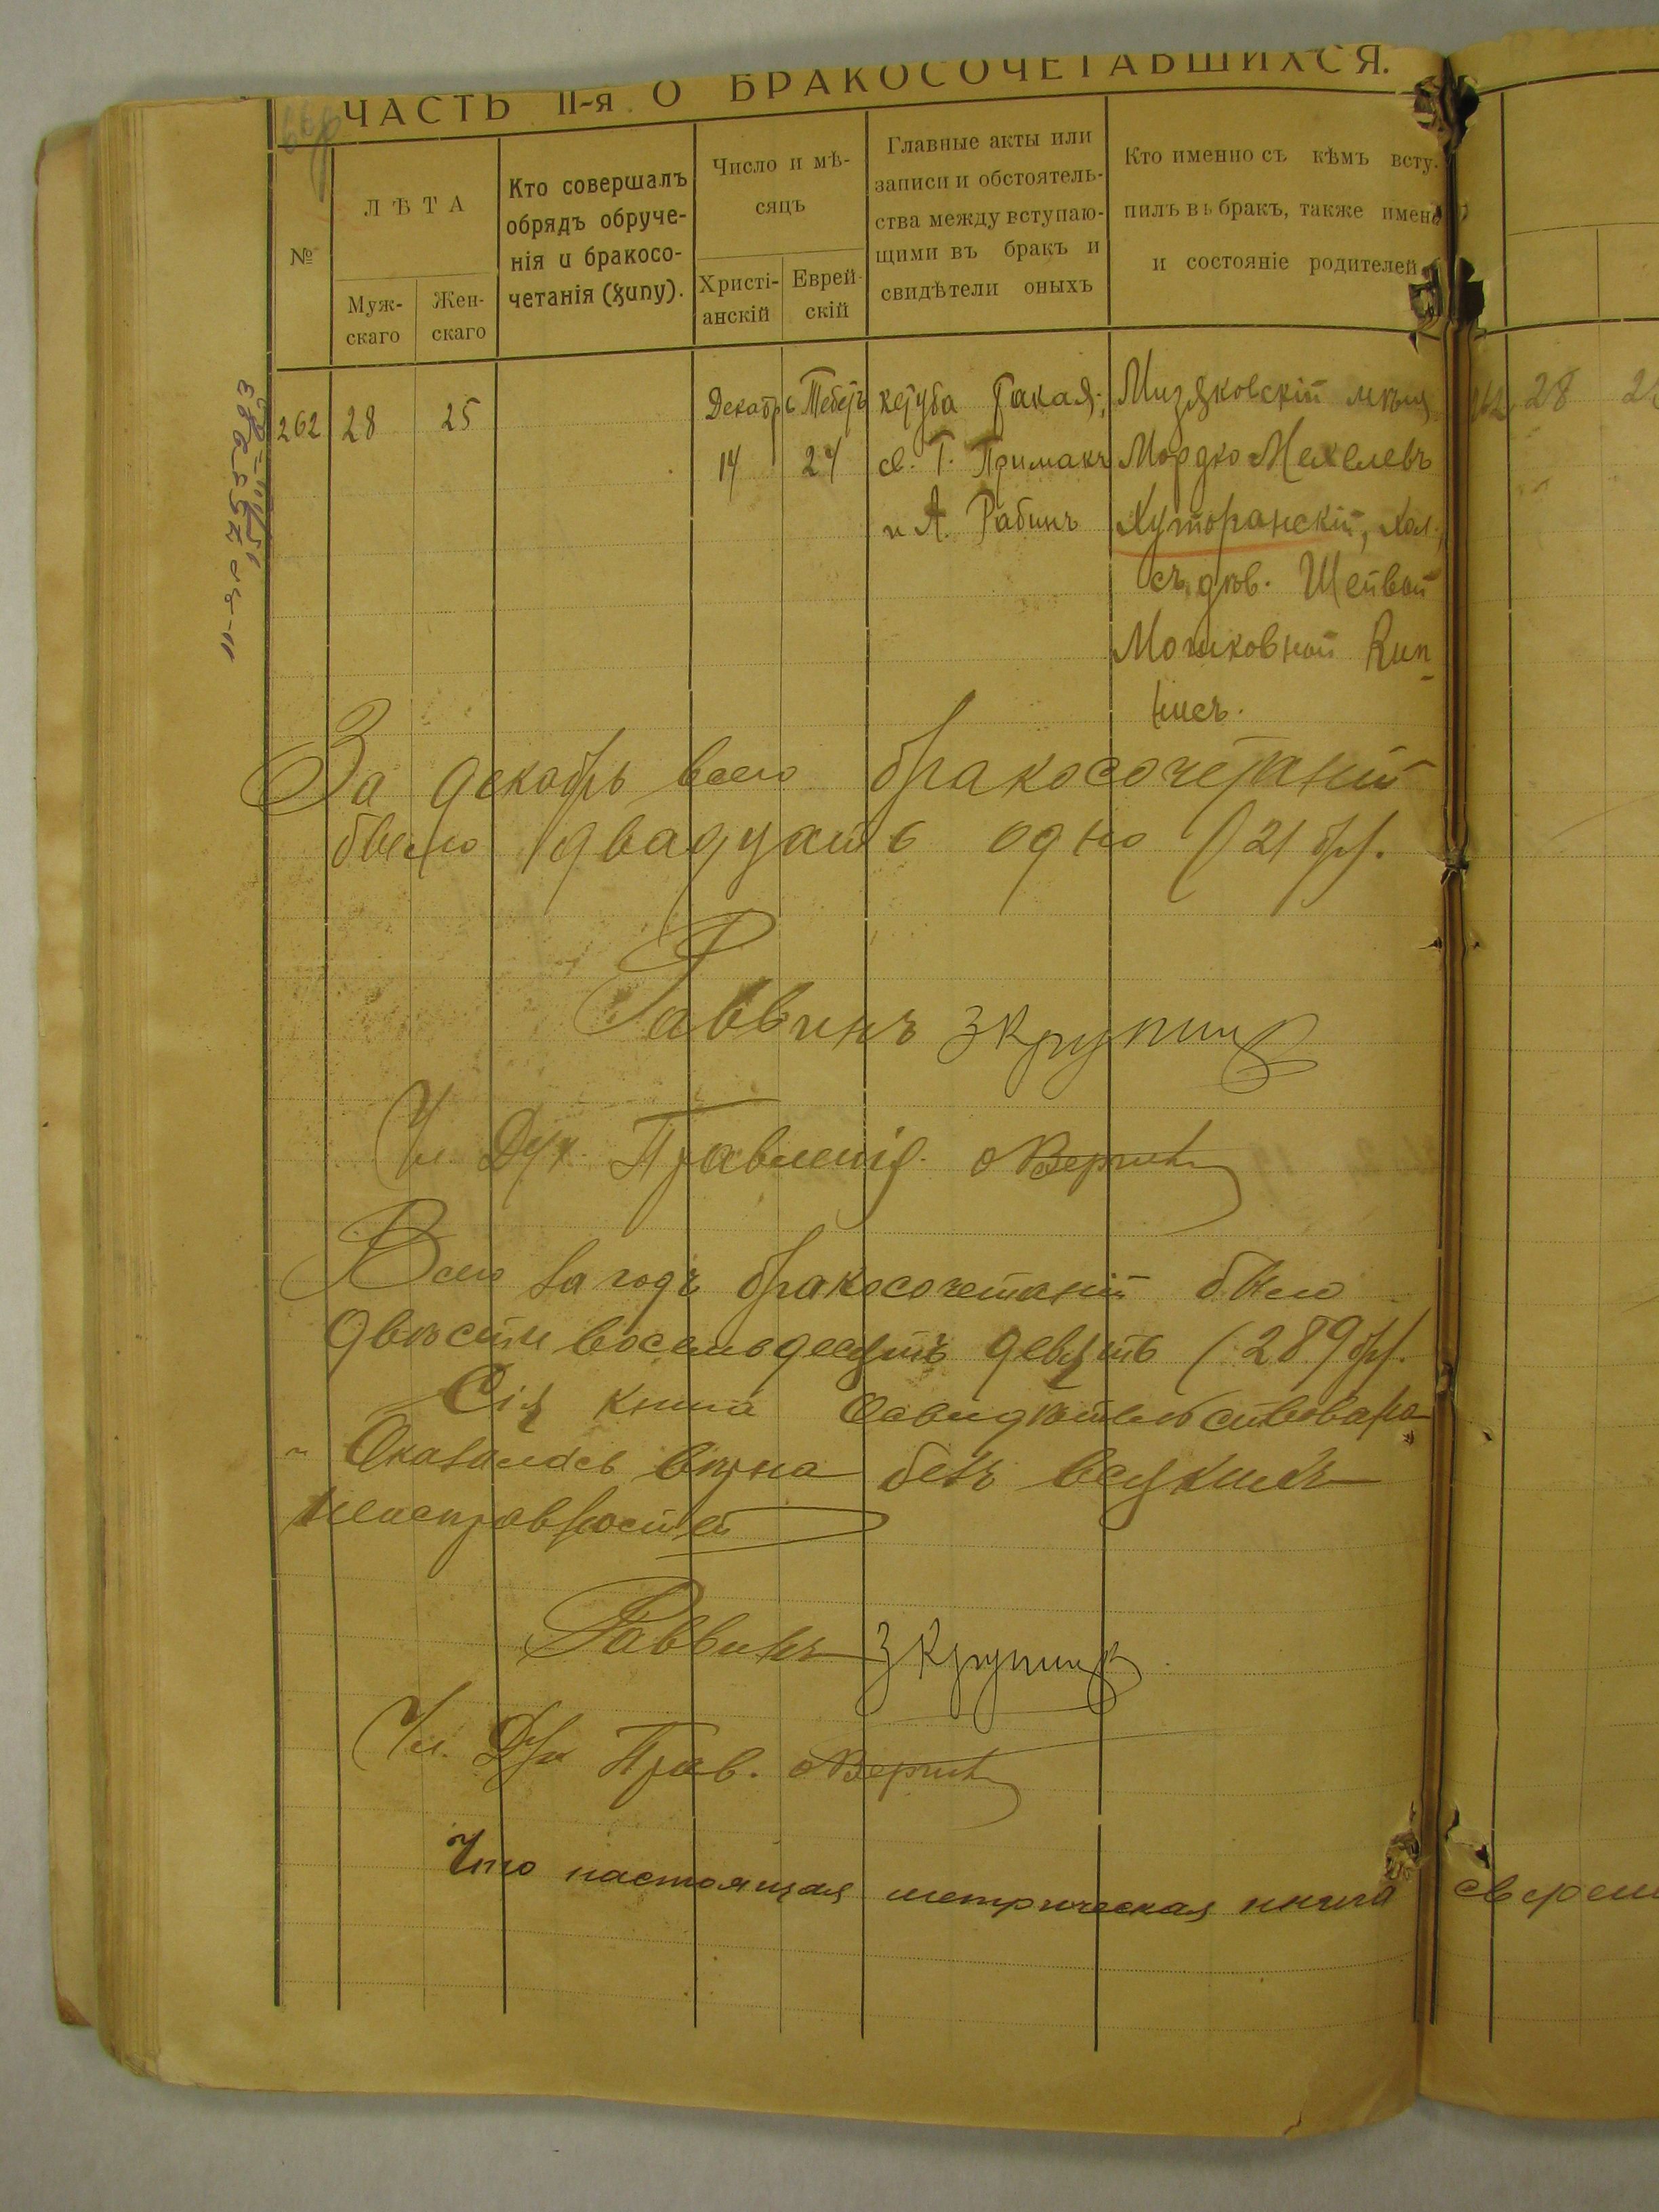 ЧАСТЬ II-я О БРАКОСОЧЕТАВШИХСЯ.
№
ЛѢТА
Муж-
скаго
Жен-
скаго
Кто совершалъ
обрядъ обруче-
нія и бракосо-
четанія (хупу).
Число и мѣ-
сяцъ
Христі-
анскій
Еврей-
скій
Главные акты или
записи и обстоятель-
ства между вступаю-
щими въ бракъ и
свидѣтели оныхъ
Кто именно съ кѣмъ всту-
пилъ въ бракъ, также имена
и состояніе родителей
262 28 25 Декабрь Тебетъ кетуба такая; Мизяковскій мѣщ
14 24 св. Г. Примакъ Мордко Мехелевъ
и А. Рабинъ Хуторанскій, хол.
съ дѣв. Шейвой
Мошковной Кип-
нисъ.
За декабрь всего бракосочетаній
было двадцать одно (21 бр).
Раввинъ З Крупник
Чл. Дух. Правленія
Всего за годъ бракосочетаній было
двѣсти восемьдесятъ девять (289 бр).
Сія книга освидѣтельствована
и оказалась вѣрна безъ всякихъ
неисправностей
Раввинъ З Крупник
Чл. Дух Прав.
Что настоящая метрическая книга
262 28